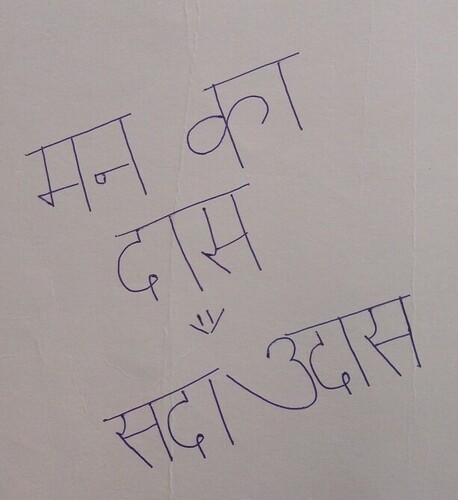 मन का
दास
⇓
सदा उदास